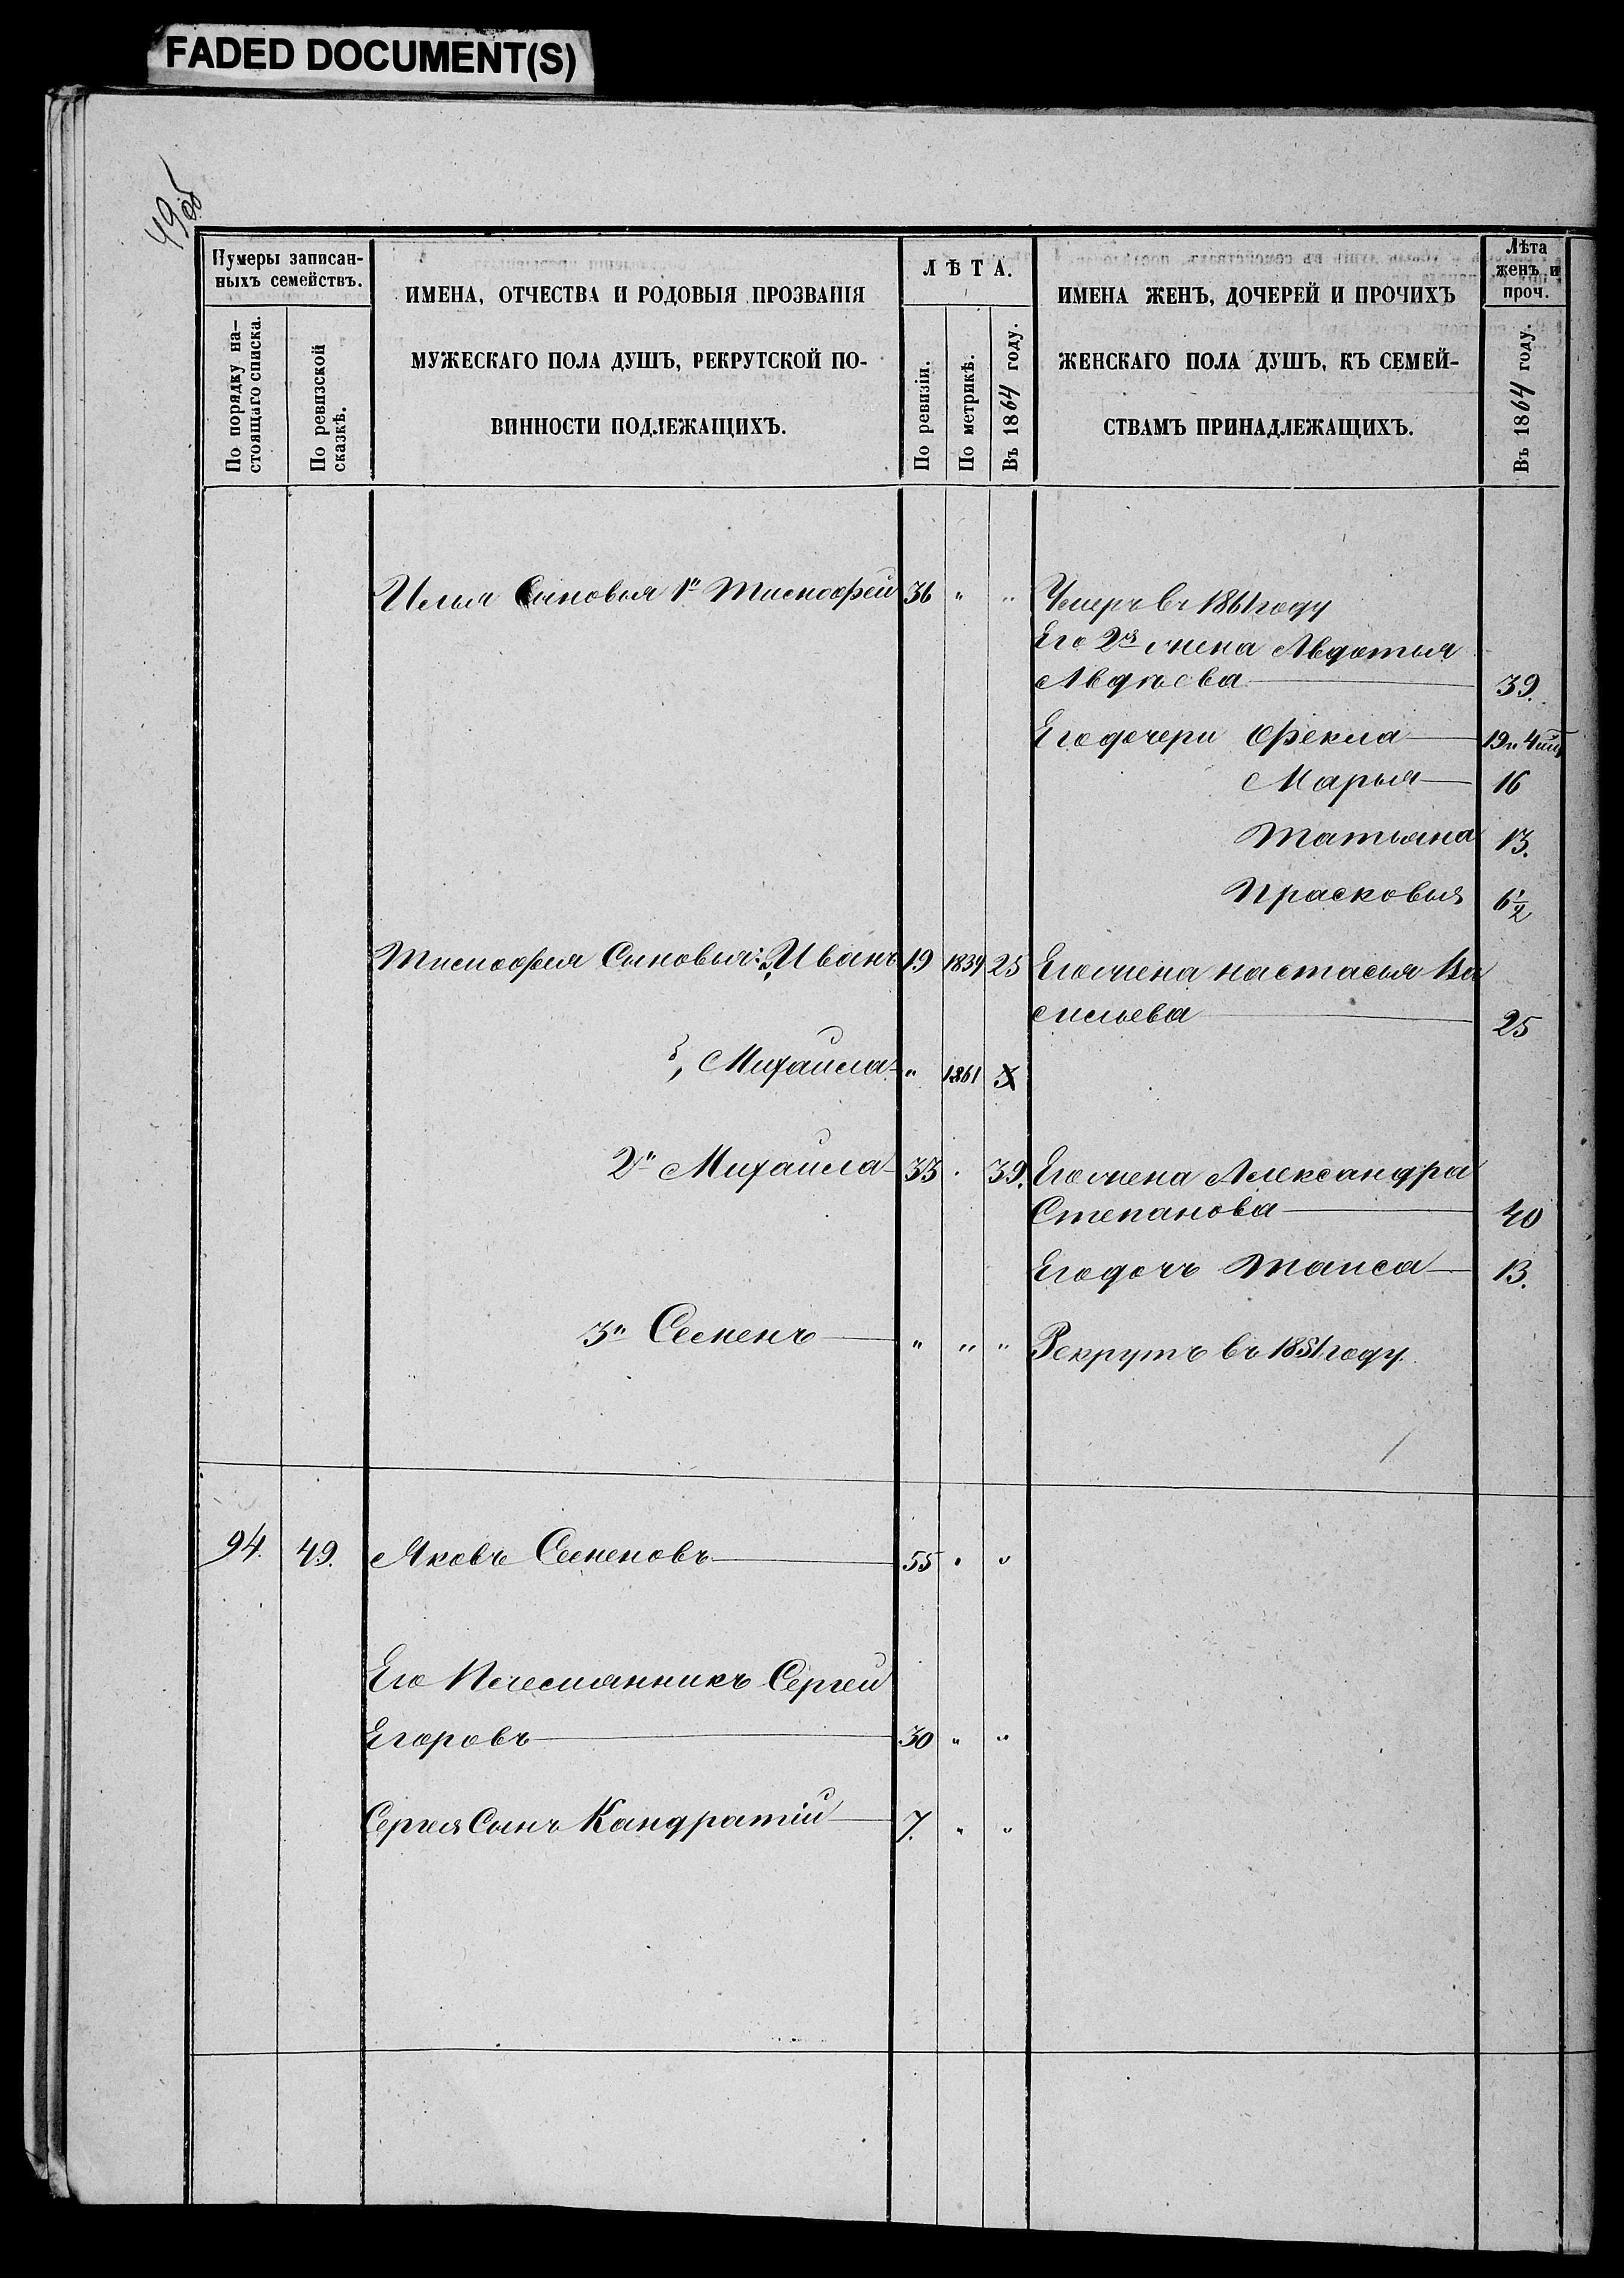 FADED DOCUMENT(S)
49 об
Нумеры записан-
ныхъ семействъ.
По порядку на-
стоящаго списка.
По ревизской
сказкѣ.
ИМЕНА, ОТЧЕСТВА И РОДОВЫЯ ПРОЗВАНІЯ
МУЖЕСКАГО ПОЛА ДУШЪ, РЕКРУТСКОЙ ПО-
ВИННОСТИ ПОДЛЕЖАЩИХЪ.
ЛѢТА.
По ревизіи.
По метрикѣ.
Въ 1864 году.
ИМЕНА ЖЕНЪ, ДОЧЕРЕЙ И ПРОЧИХЪ
ЖЕНСКАГО ПОЛА ДУШЪ, КЪ СЕМЕЙ-
СТВАМЪ ПРИНАДЛЕЖАЩИХЪ.
Лѣта
женъ и
проч.
Въ 1864 году.
Ильи Сыновья 1й Тимофей 36 " " Умеръ въ 1861 году
Его 2я жена Авдотья
Авдѣева 39.
Его дочери Фекла 19 и 4 мц
Марья 16
Татьяна 13.
Прасковья 6 1/2
Тимофея Сыновья: а, Иванъ 19 1839 25 Его жена настасья Ва
сильева 25
б, Михаила " 1861 3
2й Михаила 33 . 39. Его жена Александра
Степанова 40
Его дочь Таиса 13.
3й Семенъ " " " Рекрутъ въ 1851 году.
94. 49. Яковъ Семеновъ 55 " "
Его Племянникъ Сергей
Егоровъ 30 " "
Сергея Сынъ Кандратій 7. " "